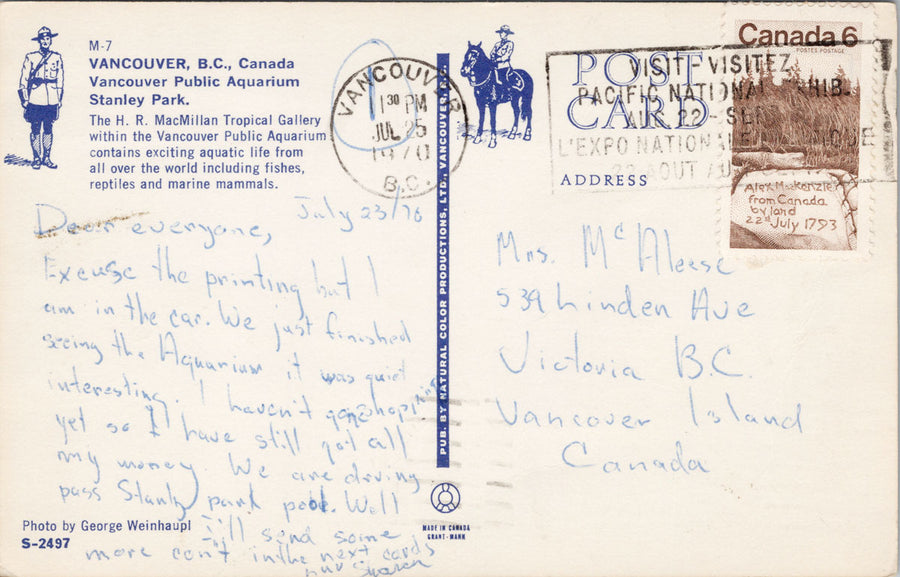 M-7
VANCOUVER, B.C., Canada
Vancouver Public Aquarium
Stanley Park.
The H. R. MacMillan Tropical Gallery
within the Vancouver Public Aquarium
contains exciting aquatic life from
all over the world including fishes,
reptiles and marine mammals.
July 23/70
Dear everyone,
Excuse the printing but I
am in the car. We just finished
seeing the Aquarium it was quiet
interesting. I haven't gone shopping
yet so I have still got all
my money. We are driving
pass Stanly park pool. Well
I'll send some
more con't in the next cards
luv Sharon
Photo by George Weinhaupl
S-2497
PUB. BY NATURAL COLOR PRODUCTIONS, LTD., VANCOUVER
MADE IN CANADA
GRANT-MANN
VANCOUVER
1 30 PM
JUL 25
1970
B.C.
POST
CARD
ADDRESS
VISIT-VISITEZ
PACIFIC NATIONAL
AUG 22 - SEP
L'EXPO NATIONALE
22 AOUT AU
Canada 6
POSTES POSTAGE
Alex MacKenzie
from Canada
by land
22nd July 1793
Mrs. McAleese
539 Linden Ave
Victoria B.C.
Vancouver Island
Canada